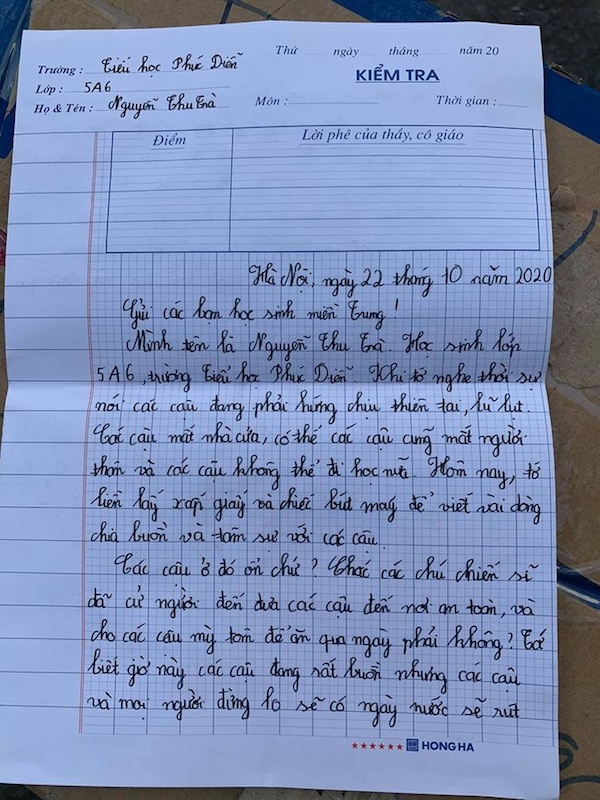 Thứ ngày tháng năm 20
Trường : Tiểu học Phúc Diễn
KIỂM TRA
Lớp : 5A6
Họ & Tên : Nguyễn Thu Trà
Môn : Thời gian :
Điểm
Lời phê của thầy, cô giáo
Hà Nội, ngày 22 tháng 10 năm 2020
Gửi các bạn học sinh miền Trung !
Mình tên là Nguyễn Thu Trà. Học sinh lớp
5A6, trường Tiểu học Phúc Diễn. Khi tớ nghe thời sự
nói các cậu đang phải hứng chịu thiên tai, lũ lụt.
Các cậu mất nhà cửa, có thể các cậu cũng mất người
thân và các cậu không thể đi học nữa. Hôm nay, tớ
liền lấy xấp giấy và chiếc bút máy để viết vài dòng
chia buồn và tâm sự với các cậu.
Các cậu ở đó ổn chứ ? Chắc các chú chiến sĩ
đã cử người đến đưa các cậu đến nơi an toàn, và
cho các cậu mỳ tôm để ăn qua ngày phải không ? Tớ
biết giờ này các cậu đang rất buồn nhưng các cậu
và mọi người đừng lo sẽ có ngày nước sẽ rút
★★★★★★ HONG HA